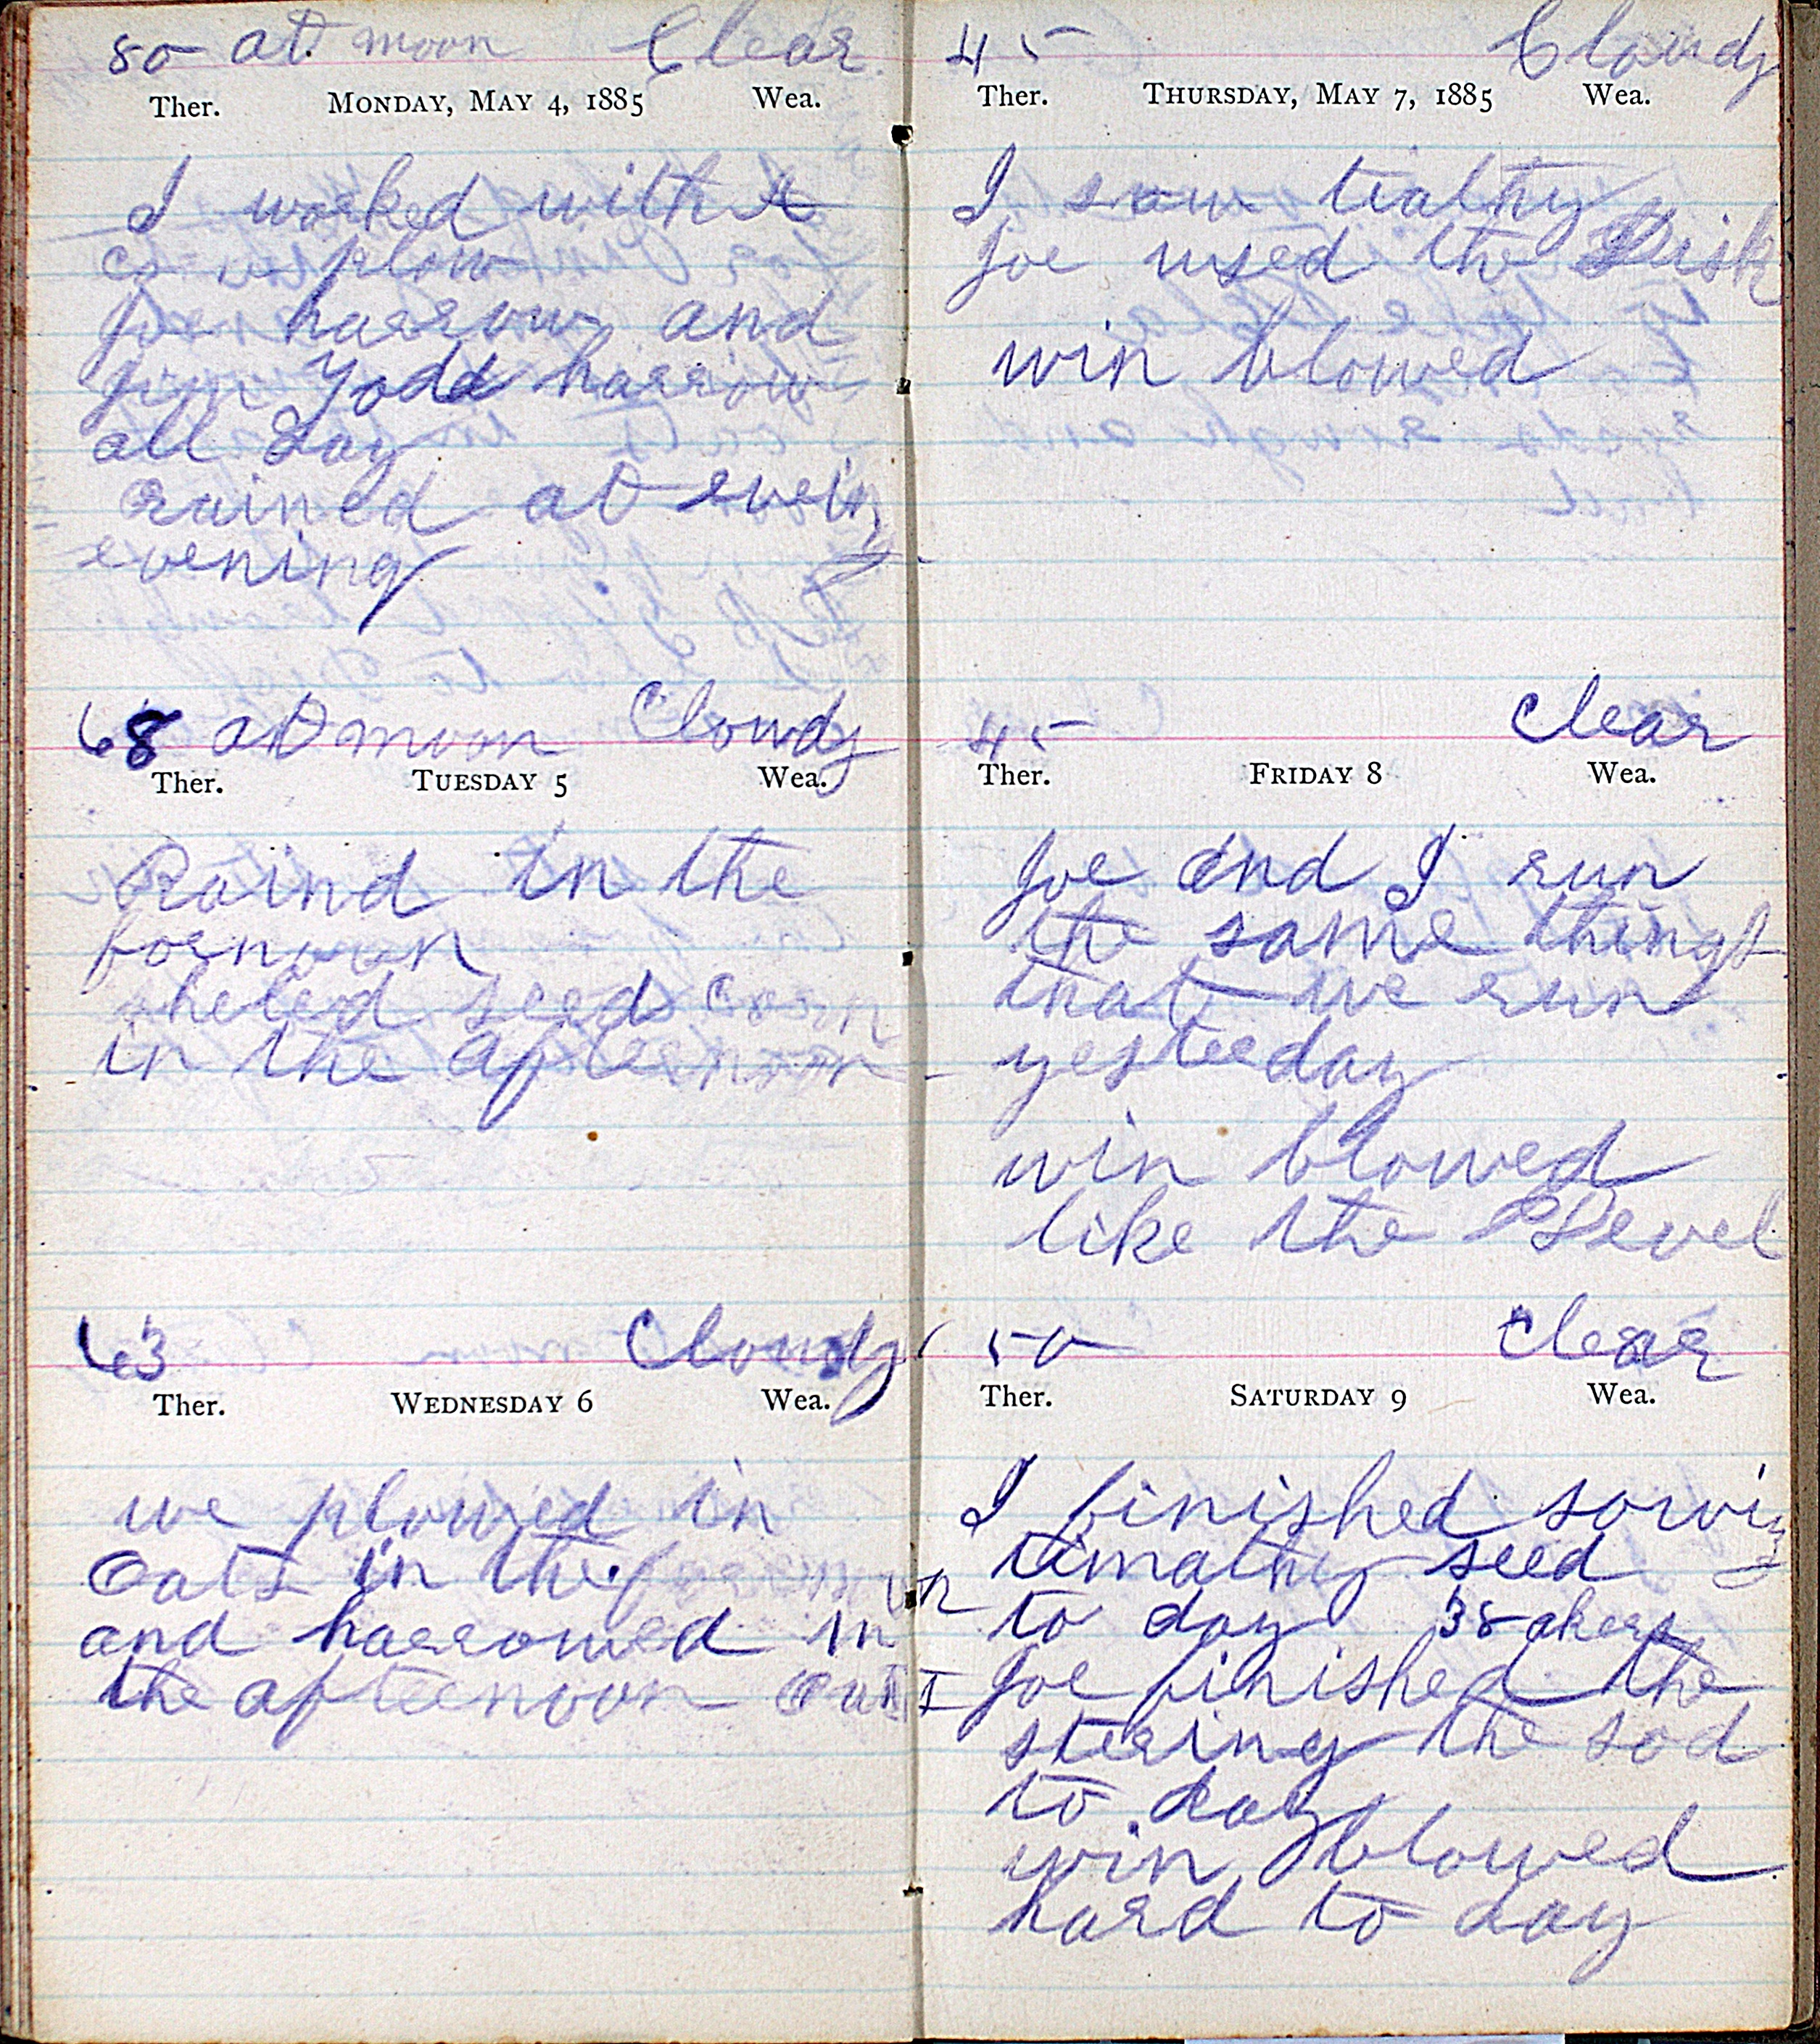 80 at moon Clear
Ther. MONDAY, MAY 4, 1885 Wea.
I worked with
co plow
Joe harrow and
Jim Yodd harrow
all day
rained at evein
evening
68 at moon Cloudy
Ther. TUESDAY 5 Wea.
Raind in the
fornoon
sheled seed corn
in the afternoon
63 Cloudy
Ther. WEDNESDAY 6 Wea.
we plowed in
Oats in the fornoon
and harrowed in
the afternoon Oats
45 Cloudy
Ther. THURSDAY, MAY 7, 1885 Wea.
I sow
Joe used the Disk
win blowed
45 Clear
Ther. FRIDAY 8 Wea.
Joe and I run
the same things
that we run
yesterday
win blowed
like the Devel
50 Clear
Ther. SATURDAY 9 Wea.
I finished sowing
timathy seed
to day 38 akers
Joe finished the
stering the sod
to day
win blowed
hard to day